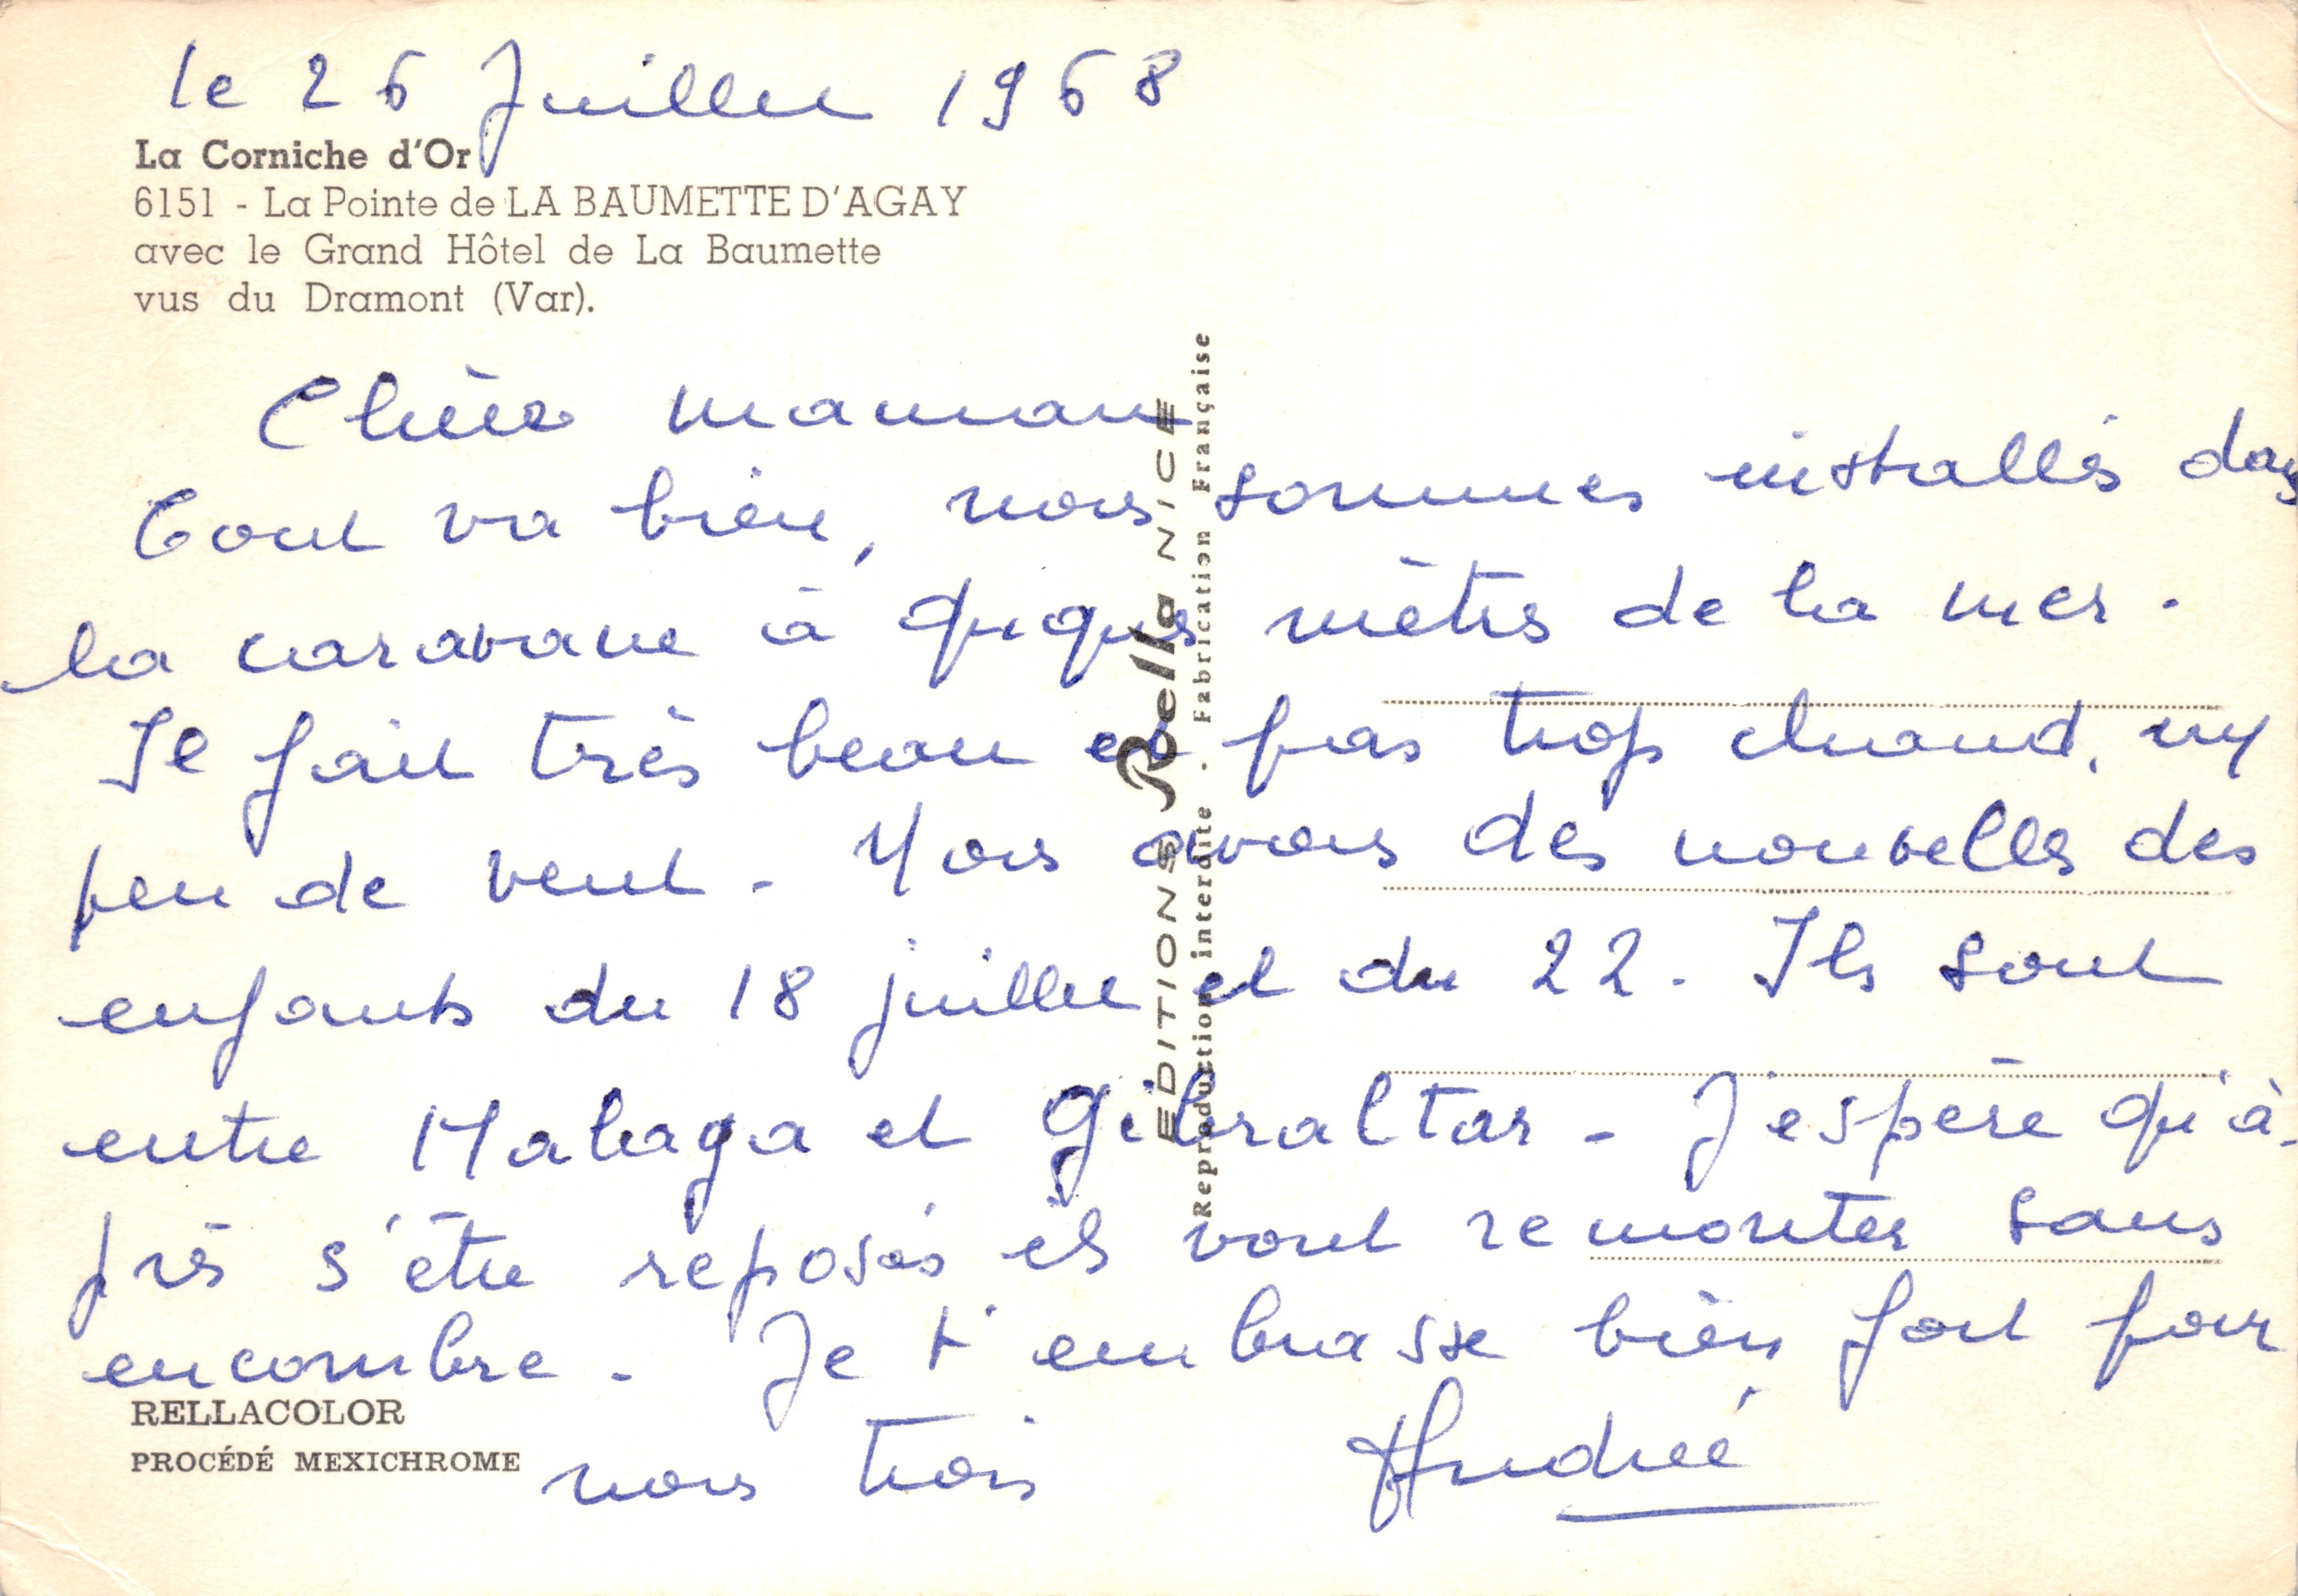 le 26 Juillet 1968
La Corniche d'Or
6151 - La Pointe de LA BAUMETTE D'AGAY
avec le Grand Hôtel de La Baumette
vus du Dramont (Var).
Chère maman
Tout va bien, nous sommes installés dans
la caravane à quques mètres de la mer.
Il fait très beau et pas trop chaud, un
peu de vent. Nous avons des nouvelles des
enfants du 18 juillet et du 22. Ils sont
entre Malaga et Gibraltar - J'espère qu'à-
près s'être reposés ils vont remonter sans
encombre. Je t'embrasse bien fort pour
nous trois Andrée
RELLACOLOR
PROCÉDÉ MEXICHROME
EDITIONS Rella NICE
Reproduction interdite . Fabrication Française